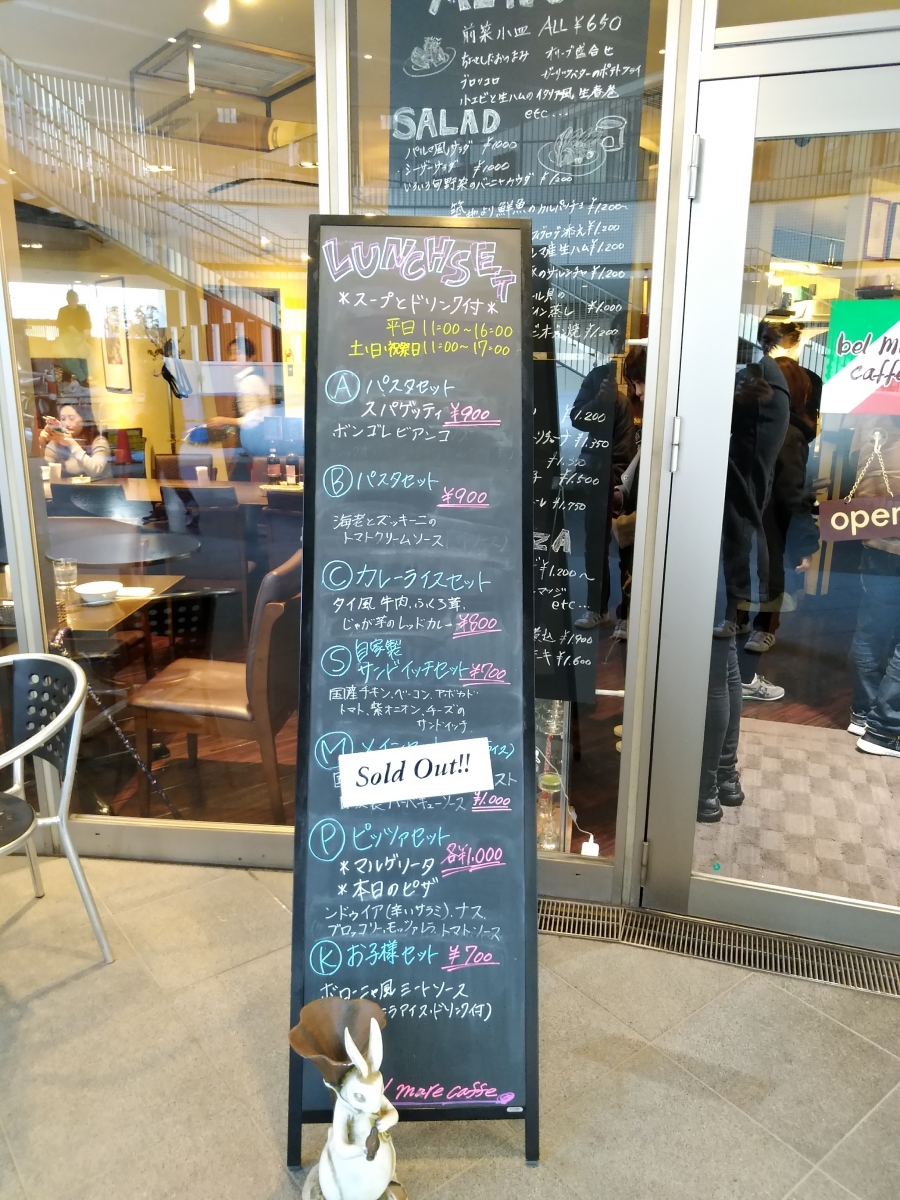 前菜小皿 ALL ¥650
ブロッコロ
小エビと生ハムのイタリア風 生春巻
etc...
SALAD
パルマ風サラダ ¥1000
シーザーサラダ ¥1000
いろいろ旬野菜のバーニャカウダ ¥1200
築地より鮮魚のカルパッチョ ¥1,200~
添え ¥1,200
マ産生ハム ¥1,200
¥1,200
蒸し ¥1,000
焼 ¥1,200
¥1,200
¥1,350
¥1,500
¥1,750
ZA
¥1,200~
etc...
込 ¥1,900
ーキ ¥1,600
LUNCH SET
*スープとドリンク付*
平日 11:00~16:00
土・日・祝祭日 11:00~17:00
A パスタセット
スパゲッティ ¥900
ボンゴレビアンコ
B パスタセット
¥900
海老とズッキーニの
トマトクリームソース
C カレーライスセット
タイ風 牛肉、ふくろ茸、
じゃが芋のレッドカレー ¥800
S 自家製
サンドイッチセット ¥700
国産チキン、ベーコン、アボカド
トマト、紫オニオン、チーズの
サンドイッチ
M メインセット
イス)
Sold Out!!
スト
バーベキューソース ¥1,000
P ピッツァセット
*マルゲリータ 各¥1,000
*本日のピザ
ンドゥイア(辛いサラミ)、ナス、
ブロッコリー、モッツァレラ、トマトソース
K お子様セット ¥700
ボローニャ風ミートソース
ラアイス・ドリンク付)
mare caffe
bel m
caffe
open